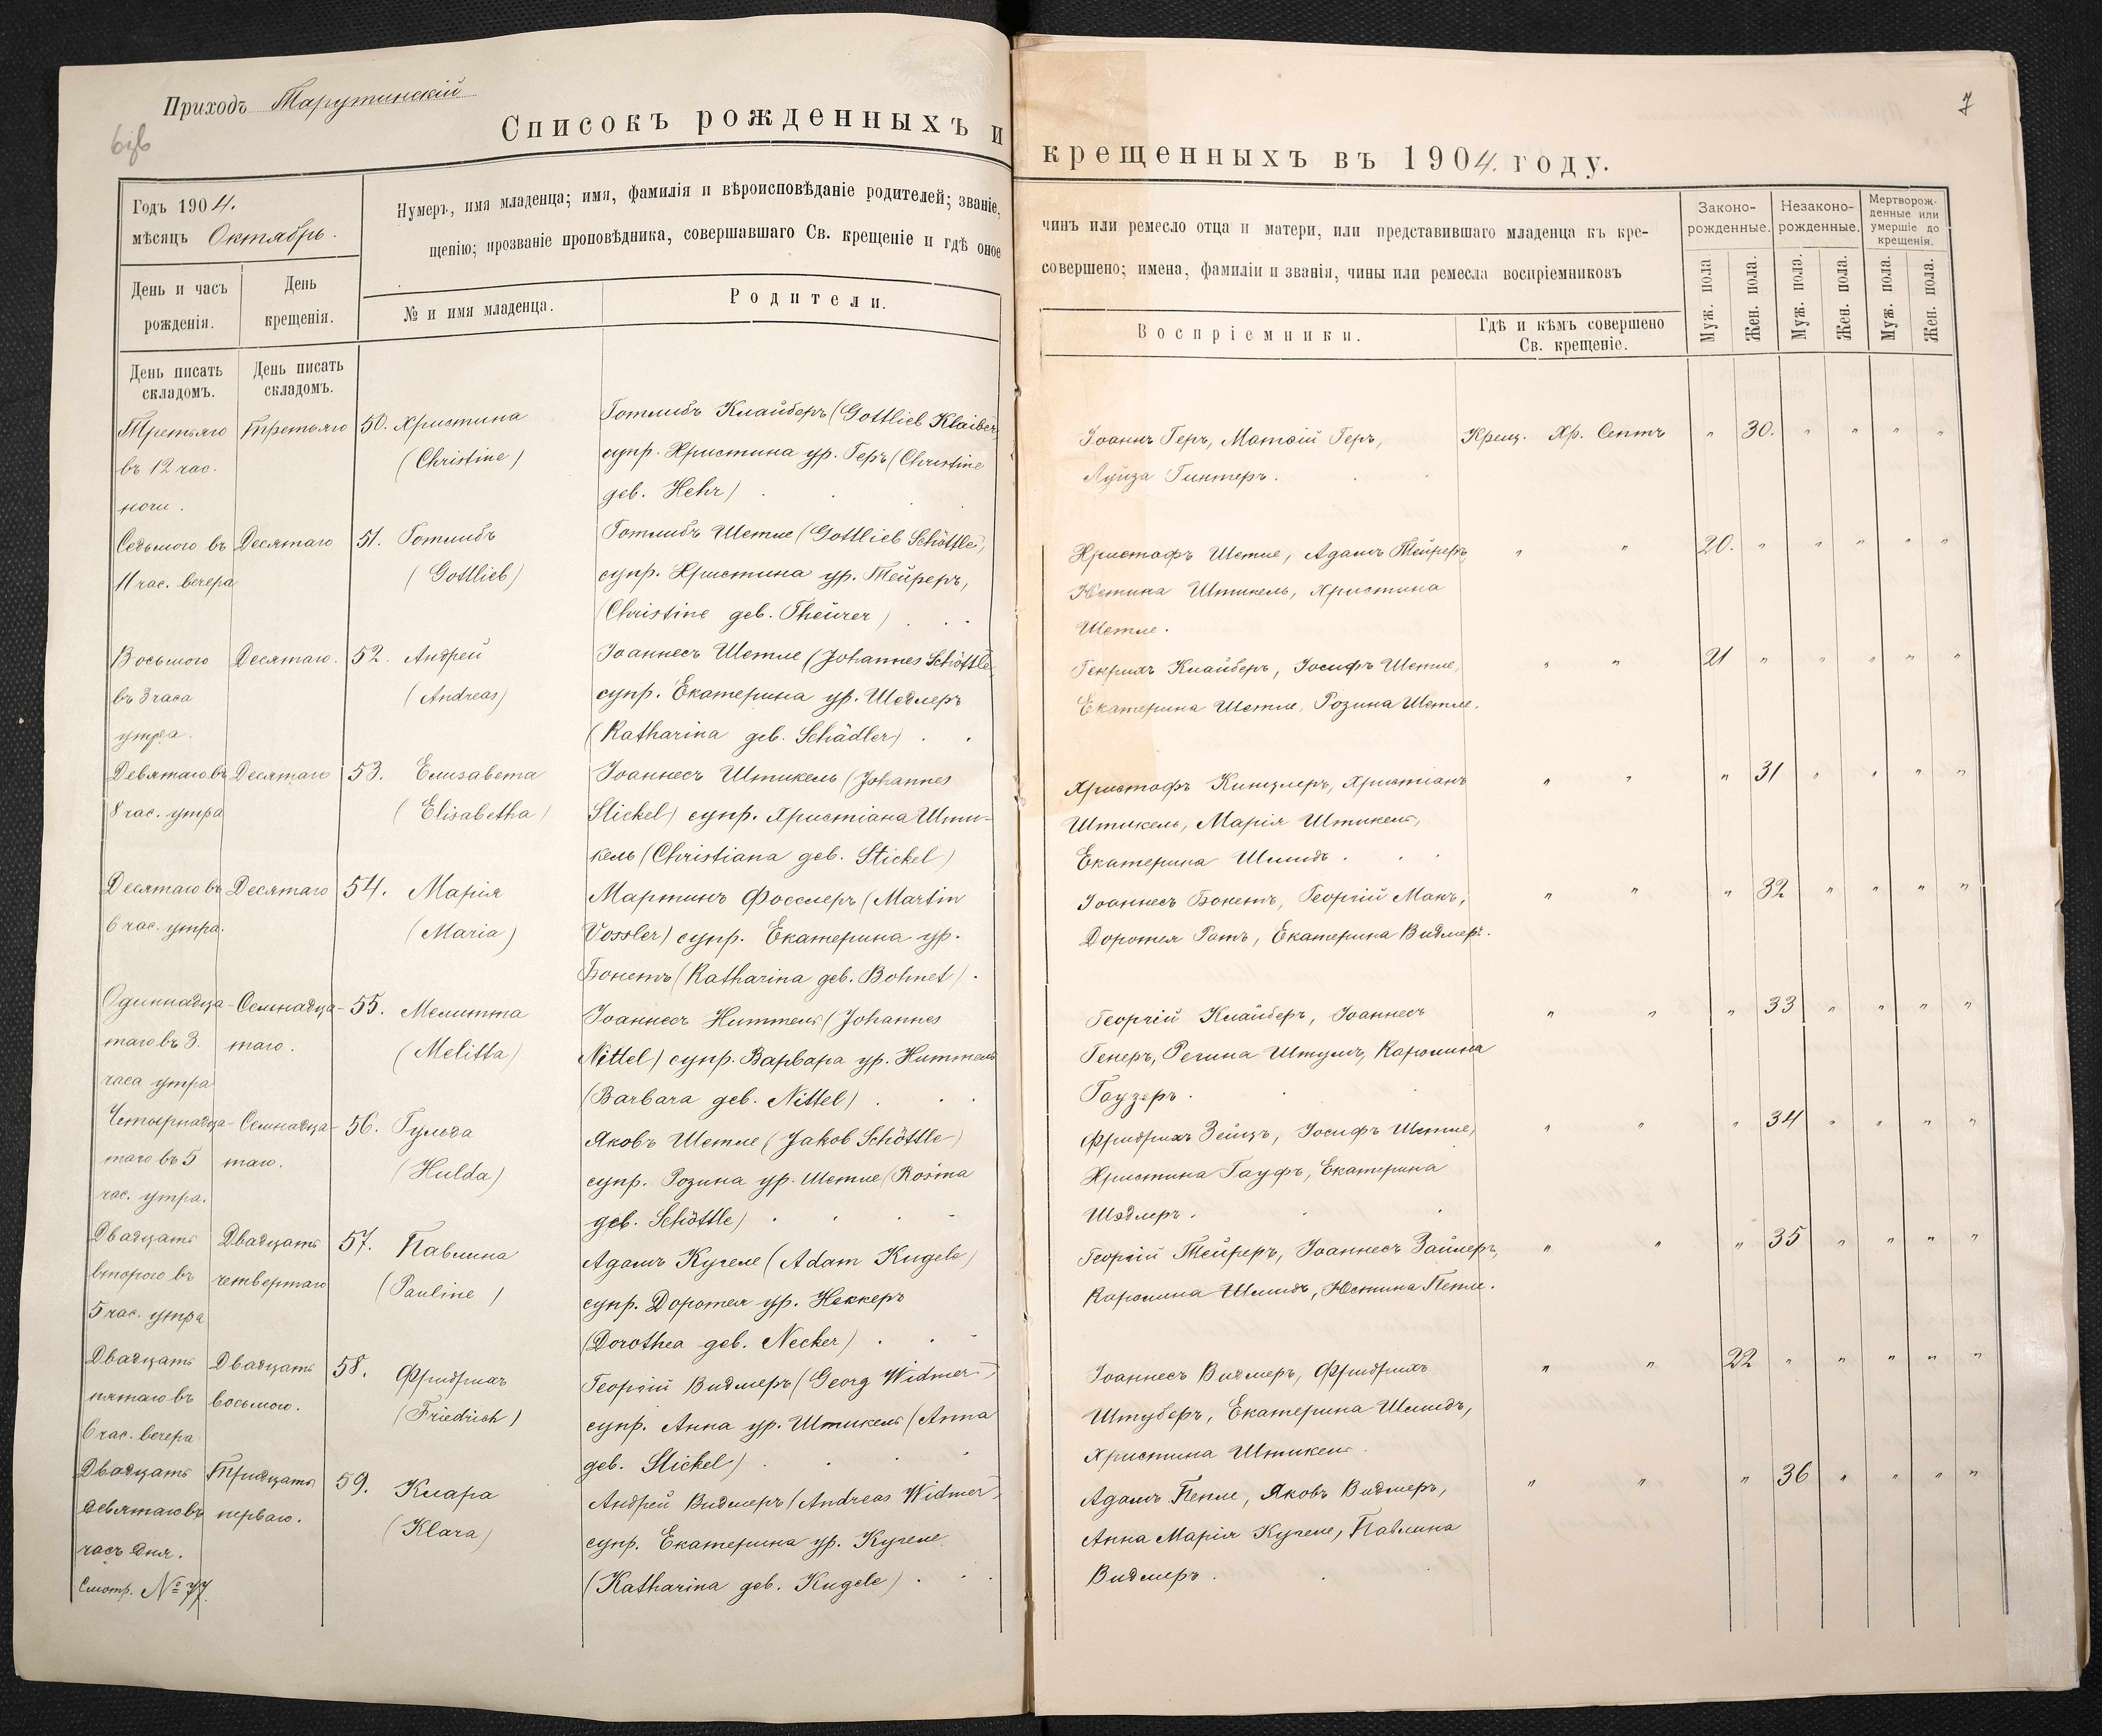 Приходъ Тарутинскій
Списокъ рожденныхъ и крещенныхъ въ 1904. году.
7
Годъ 1904.
мѣсяцъ Октябрь.
Нумеръ, имя младенца; имя, фамилія и вѣроисповѣданіе родителей; званіе, чинъ или ремесло отца и матери, или представившаго младенца къ кре-
щенію; прозваніе проповѣдника, совершавшаго Св. крещеніе и гдѣ оное совершено; имена, фамиліи и званія, чины или ремесла воспріемниковъ
Законо-
рожденные.
Незаконо-
рожденные.
Мертворож-
денные или
умершіе до
крещенія.
День и часъ
рожденія.
День
крещенія.
№ и имя младенца.
Родители.
Воспріемники.
Гдѣ и кѣмъ совершено
Св. крещеніе.
Муж. пола.
Жен. пола.
Муж. пола.
Жен. пола.
Муж. пола.
Жен. пола.
День писать
складомъ.
День писать
складомъ.
Третьяго
въ 12 час.
ночи.
Третьяго
50. Христина
(Christine)
Готлибъ Клайберъ (Gottlieb Klaiber)
супр. Христина ур. Геръ (Christine
geb. Hehr)
Іоаннъ Геръ, Матөій Геръ,
Луиза Гинтеръ.
Крещ. Хр. Септъ
" 30. " " " "
Седьмого въ
11 час. вечера
Десятаго
51. Готлибъ
(Gottlieb)
Готлибъ Шетле (Gottlieb Schöttle),
супр. Христина ур. Тейреръ,
(Christine geb. Theurer)
Христофъ Шетле, Адамъ Тейреръ,
Юстина Штикель, Христина
Шетле.
" "
20. " " " " "
Восьмого
въ 3 часа
утра.
Десятаго.
52. Андрей
(Andreas)
Іоаннесъ Шетле (Johannes Schöttle)
супр. Екатерина ур. Шедлеръ
(Katharina geb. Schädler)
Генрихъ Клайберъ, Іосифъ Шетле,
Екатерина Шетле, Розина Шетле.
" "
21 " " " " "
Девятаго въ
8 час. утра
Десятаго
53. Елисавета
(Elisabetha)
Іоаннесъ Штикель (Johannes
Stickel) супр. Христіана Шти-
кель (Christiana geb. Stickel)
Христофъ Кинцлеръ, Христіанъ
Штикель, Марія Штикель,
Екатерина Шмидъ.
" "
" 31 " " " "
Десятаго въ
6 час. утра.
Десятаго
54. Марія
(Maria)
Мартинъ Фосслеръ (Martin
Vossler) супр. Екатерина ур.
Бонетъ (Katharina geb. Bohnet).
Іоаннесъ Бонетъ, Георгій Макъ,
Доротея Ротъ, Екатерина Видмеръ.
" "
" 32 " " " "
Одиннадца-
таго въ 3.
часа утра
Семнадца-
таго.
55. Мелитта
(Melitta)
Іоаннесъ Ниттель (Johannes
Nittel) супр. Варвара ур. Ниттель
(Barbara geb. Nittel)
Георгій Клайберъ, Іоаннесъ
Генеръ, Регина Штумъ, Каролина
Гаузеръ.
" "
" 33 " " " "
Четырнадца-
таго въ 5
час. утра.
Семнадца-
таго.
56. Гульда
(Hulda)
Яковъ Шетле (Jakob Schöttle)
супр. Розина ур. Шетле (Rosina
geb. Schöttle)
Фридрихъ Зейцъ, Іосифъ Шетле,
Христина Гауфъ, Екатерина
Шэдлеръ.
" "
" 34 " " " "
Двадцать
второго въ
5 час. утра
Двадцать
четвертаго
57. Павлина
(Pauline)
Адамъ Кугеле (Adam Kugele)
супр. Доротея ур. Неккеръ
(Dorothea geb. Necker)
Георгій Тейреръ, Іоаннесъ Зайлеръ,
Каролина Шмидъ, Юстина Петле.
" "
" 35 " " " "
Двадцать
пятаго въ
6 час. вечера
Двадцать
восьмого.
58. Фридрихъ
(Friedrich)
Георгій Видмеръ (Georg Widmer)
супр. Анна ур. Штикель (Anna
geb. Stickel)
Іоаннесъ Видмеръ, Фридрихъ
Штуберъ, Екатерина Шмидъ,
Христина Штикель.
" "
22 " " " " "
Двадцать
девятаго въ
часъ дня.
Смотр. № 77.
Тридцать
перваго.
59. Клара
(Klara)
Андрей Видмеръ (Andreas Widmer)
супр. Екатерина ур. Кугеле
(Katharina geb. Kugele)
Адамъ Пепле, Яковъ Видмеръ,
Анна Марія Кугеле, Павлина
Видмеръ.
" "
" 36 " " " "